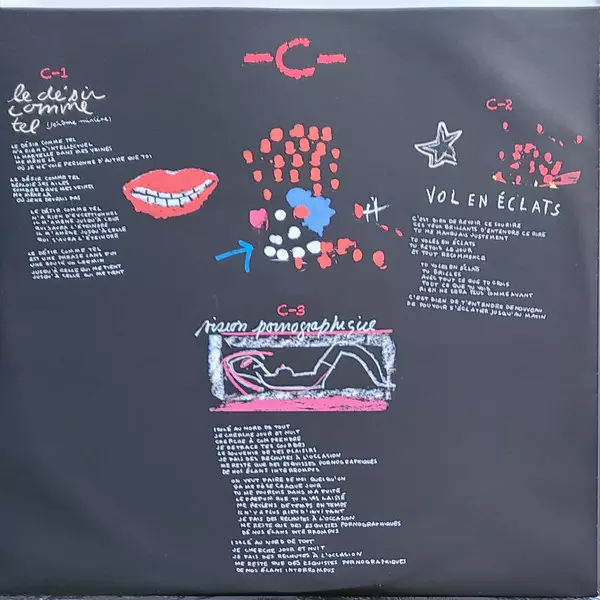 -C-
C-1
le désir
comme
tel (jérôme minière)
LE DÉSIR COMME TEL
N'A RIEN D'INTELLECTUEL
IL MARTELLE DANS MES VEINES
ME MÈNE LÀ
OÙ JE NE VOIE PERSONNE D'AUTRE QUE TOI
LE DÉSIR COMME TEL
DÉPLOIE SES AILES
COMME DANS MES VEINES
ME MÈNE LÀ
OÙ JE NE DEVRAIS PAS
LE DÉSIR COMME TEL
N'A RIEN D'EXCEPTIONNEL
IL M'AMÈNE JUSQU'À LEUR
QUI SAURA L'ÉTEINDRE
IL M'AMÈNE JUSQU'À CELLE
QUI SAURA L'ÉTEINDRE
LE DÉSIR COMME TEL
EST UNE PHRASE SANS FIN
UNE ROUTE UN CHEMIN
JUSQU'À CELLE QUI ME TIENT
JUSQU'À CELLE QUI ME TIENT
C-2
VOL EN ÉCLATS
C'EST BIEN DE REVOIR CE SOURIRE
CES YEUX BRILLANTS D'ENTENDRE CE RIRE
TU ME MANQUAIS JUSTEMENT
TU VOLES EN ÉCLATS
TU REVOIS LE JOUR
ET TOUT RECOMMENCE
TU VOLES EN ÉCLATS
TU BRILLES
AVEC TOUT CE QUE TU CROIS
TOUT CE QUE TU VOIS
RIEN NE SERA PLUS COMME AVANT
C'EST BIEN DE T'ENTENDRE DE NOUVEAU
DE POUVOIR S'ÉCLATER JUSQU'AU MATIN
C-3
vision pornographique
ISOLÉ AU NORD DE TOUT
JE CHERCHE JOUR ET NUIT
CHERCHE À COMPRENDRE
JE RETRACE TES COURBES
LE SOUVENIR DE TES PLAISIRS
JE FAIS DES RECHUTES À L'OCCASION
ME RESTE QUE DES ESQUISSES PORNOGRAPHIQUES
DE NOS ÉLANS INTERROMPUS
ON VEUT FAIRE DE MOI QUELQU'UN
ÇA ME PÈSE CHAQUE JOUR
TU ME POURSUIS DANS MA FUITE
LE PARFUM QUE TU M'AS LAISSÉ
ME REVIENS DE TEMPS EN TEMPS
IL N'Y A PLUS RIEN D'INVITANT
JE FAIS DES RECHUTES À L'OCCASION
ME RESTE QUE DES ESQUISSES PORNOGRAPHIQUES
DE NOS ÉLANS INTERROMPUS
ISOLÉ AU NORD DE TOUT
JE CHERCHE JOUR ET NUIT
JE FAIS DES RECHUTES À L'OCCASION
ME RESTE QUE DES ESQUISSES PORNOGRAPHIQUES
DE NOS ÉLANS INTERROMPUS